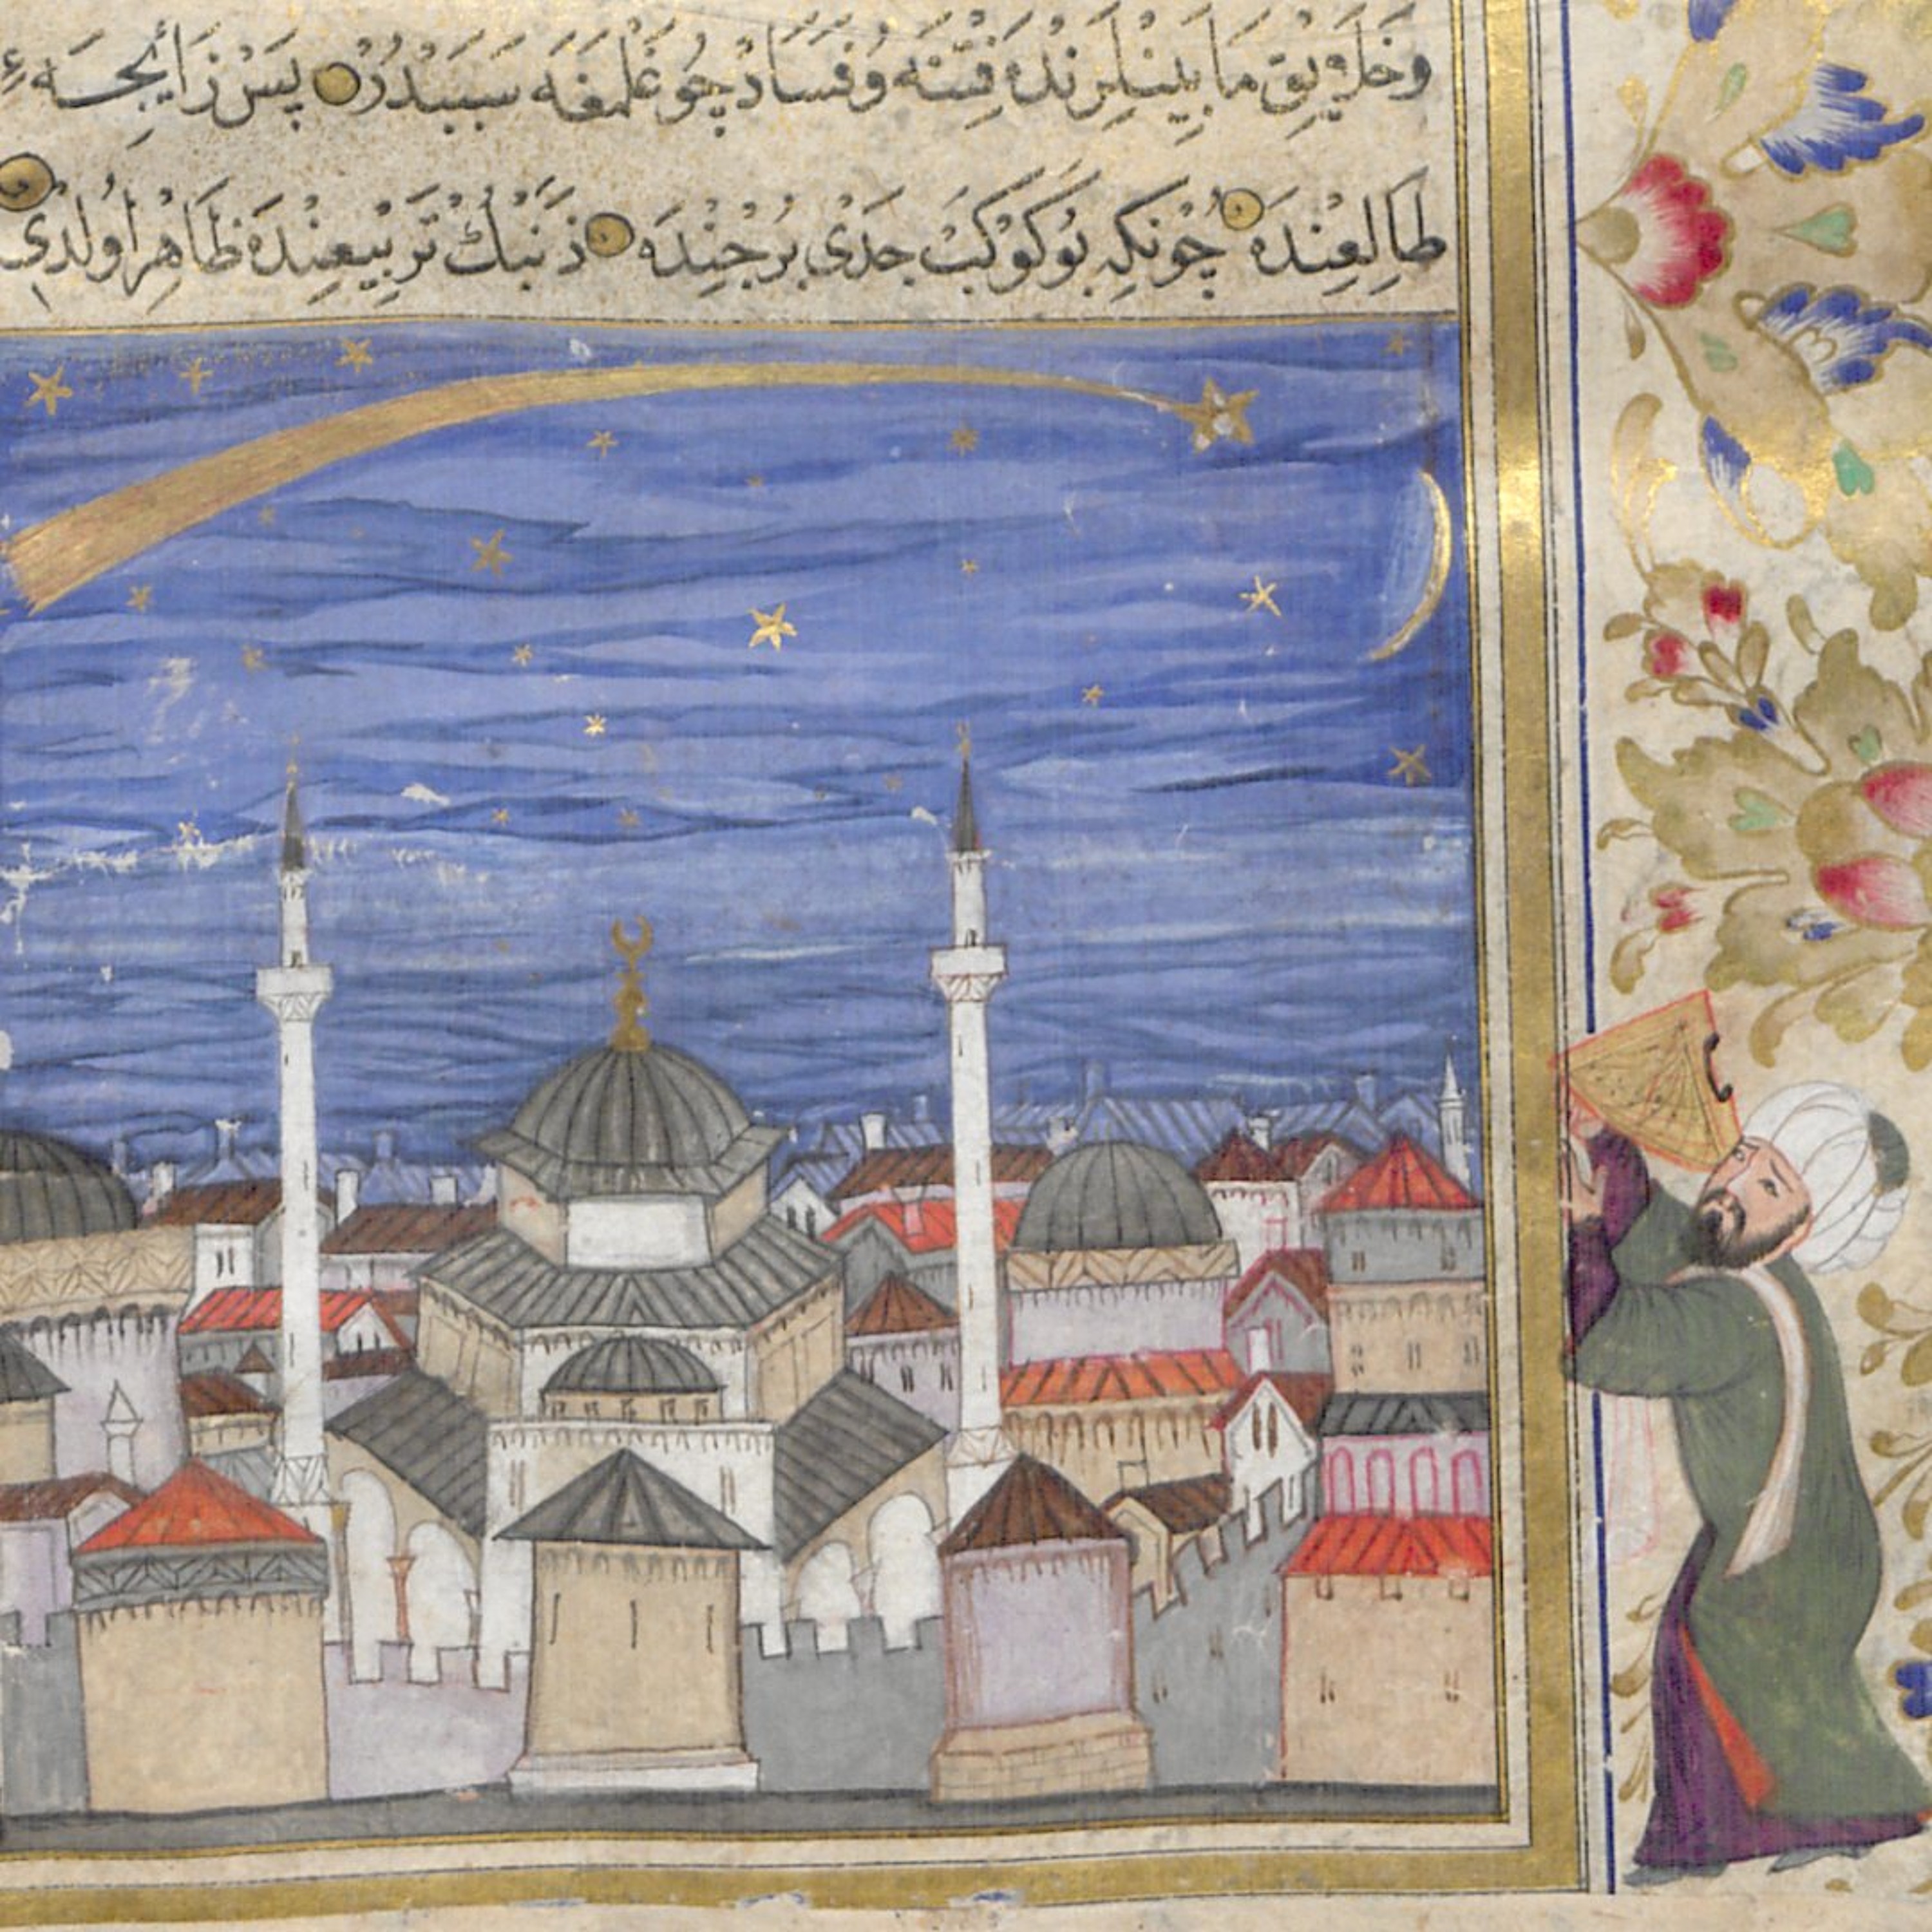 وَخَلَايِقْ مَابَيْنْلَرِنْدَه فِتْنَه وُفَسَادْ چُوغَلْمَغَه سَبَبْدُرْ پَسْ زَايْجَهءِ
طَالِعِنْدَه چُونْكِه بُوكَوْكَبْ جَدْيْ بُرْجِنْدَه ذَنَبْكْ تَرْبِيعِنْدَه ظَاهِرْ اُولْدِي